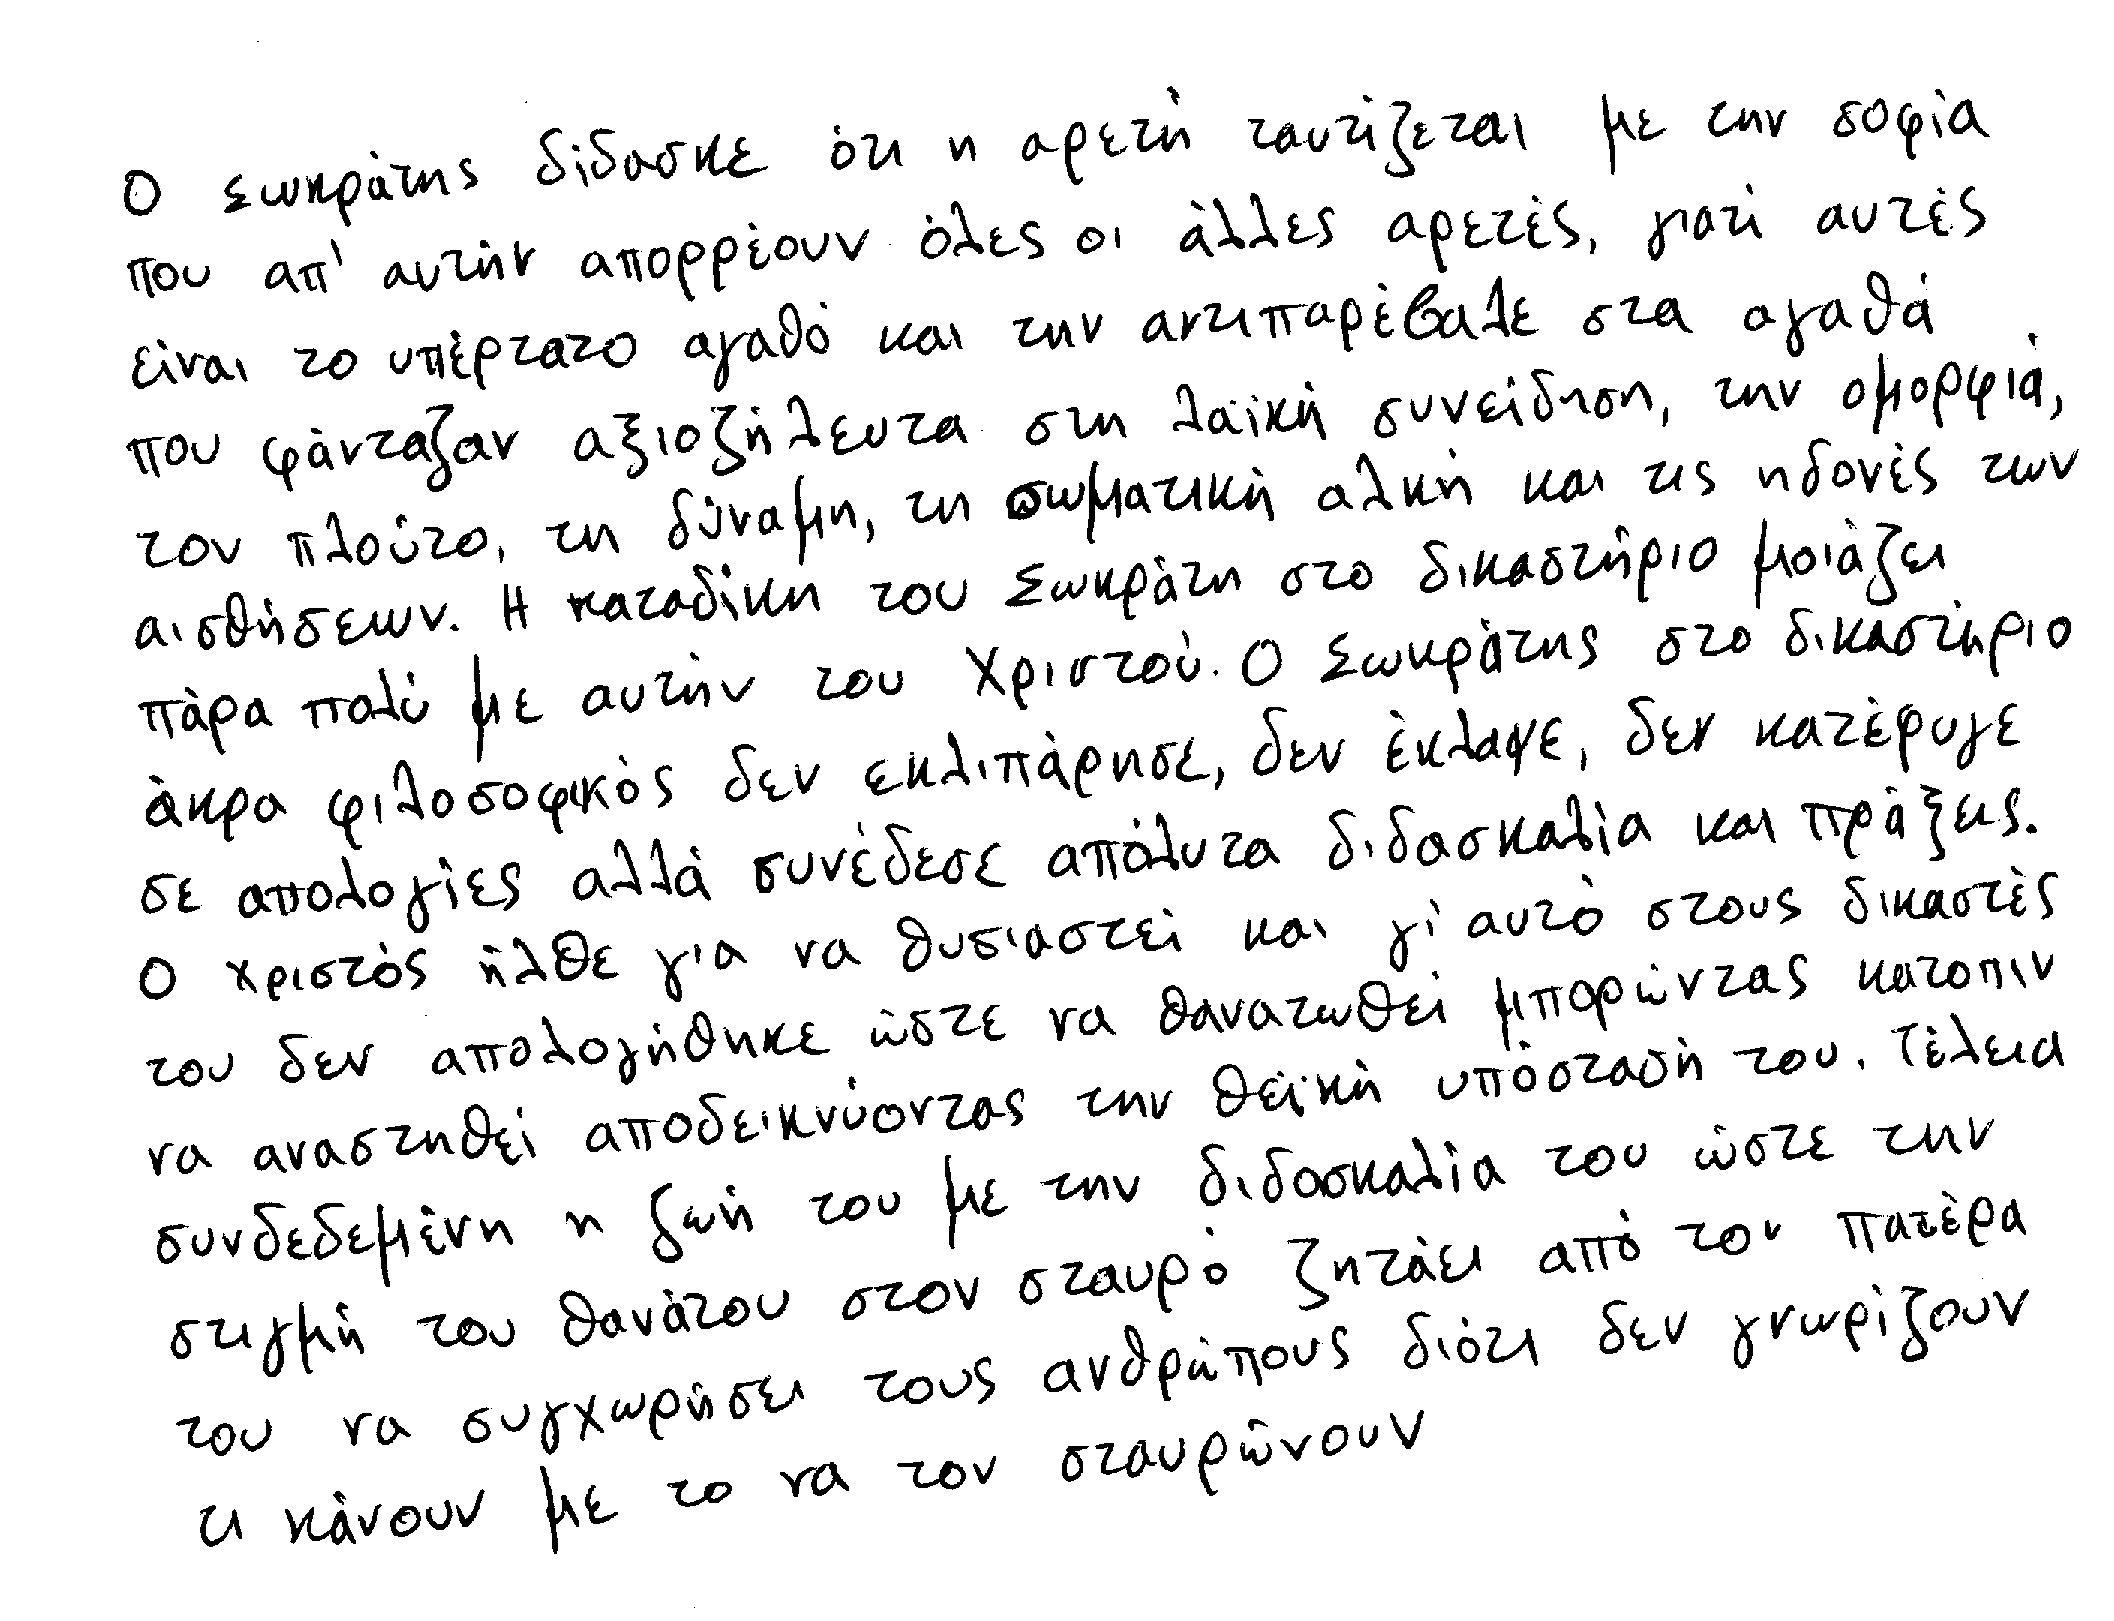 Ο Σωκράτης δίδασκε ότι η αρετή ταυτίζεται με την σοφία
που απ' αυτήν απορρέουν όλες οι άλλες αρετές, γιατί αυτές
είναι το υπέρτατο αγαθό και την αντιπαρέβαλε στα αγαθά
που φάνταζαν αξιοζήλευτα στη λαϊκή συνείδηση, την ομορφιά,
τον πλούτο, τη δύναμη, τη σωματική αλκή και τις ηδονές των
αισθήσεων. Η καταδίκη του Σωκράτη στο δικαστήριο μοιάζει
πάρα πολύ με αυτήν του Χριστού. Ο Σωκράτης στο δικαστήριο
άκρα φιλοσοφικός δεν εκλιπάρησε, δεν έκλαψε, δεν κατέφυγε
σε απολογίες αλλά συνέδεσε απόλυτα διδασκαλία και πράξεις.
Ο Χριστός ήλθε για να θυσιαστεί και γι' αυτό στους δικαστές
του δεν απολογήθηκε ώστε να θανατωθεί μπορώντας κατοπιν
να αναστηθεί αποδεικνύοντας την θεϊκή υπόστασή του. Τέλεια
συνδεδεμένη η ζωή του με την διδασκαλία του ώστε την
στιγμή του θανάτου στον σταυρό ζητάει από τον πατέρα
του να συγχωρήσει τους ανθρώπους διότι δεν γνωρίζουν
τι κάνουν με το να τον σταυρώνουν